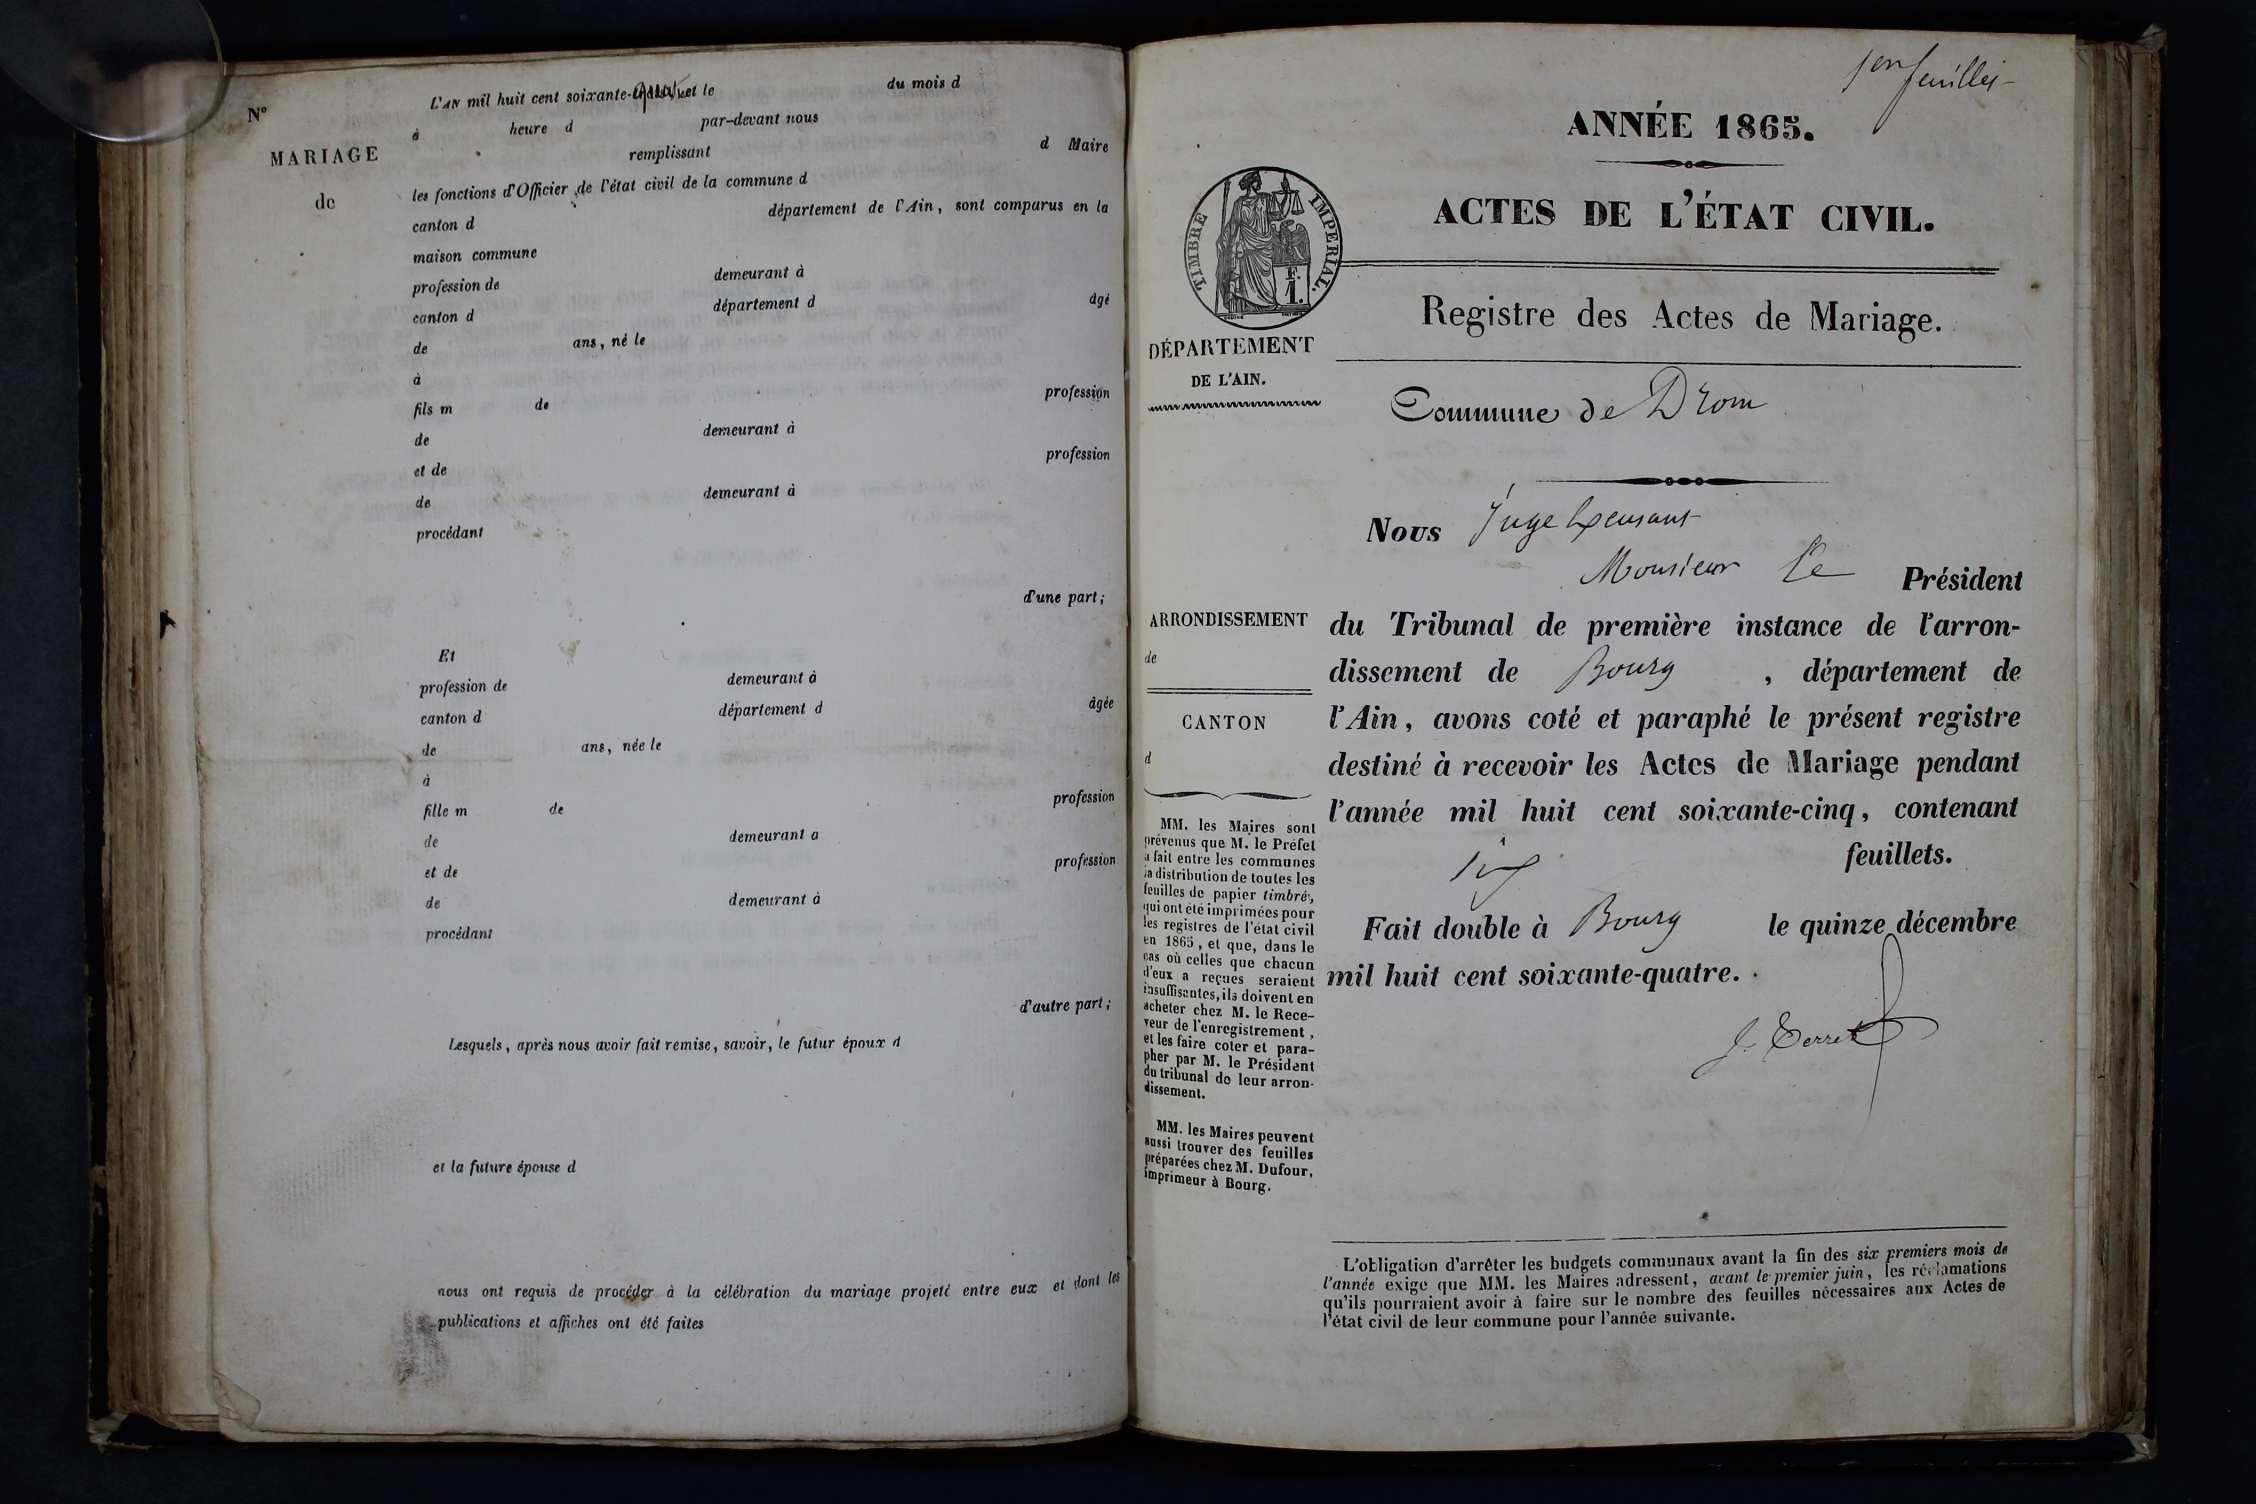 N°
MARIAGE
de
L'AN mil huit cent soixante- et le du mois d
à heure d par-devant nous
remplissant d Maire
les fonctions d'Officier de l'état civil de la commune d
canton d département de l'Ain, sont comparus en la
maison commune
profession de demeurant à
canton d département d âgé
de ans, né le
à
fils m de profession
de demeurant à
et de profession
de demeurant à
procédant
d'une part;
Et
profession de demeurant à
canton d département d âgée
de ans, née le
à
fille m de profession
de demeurant a
et de profession
de demeurant à
procédant
d'autre part;
Lesquels, après nous avoir fait remise, savoir, le futur époux d
et la future épouse d
nous ont requis de procéder à la célébration du mariage projeté entre eux et dont les
publications et affiches ont été faites
1er feuillet
ANNÉE 1865.
ACTES DE L'ÉTAT CIVIL.
TIMBRE IMPERIAL.
F.
1.
Registre des Actes de Mariage.
DÉPARTEMENT
DE L'AIN.
Commune de Drom
Nous Juge
Monsieur Le Président
du Tribunal de première instance de l'arron-
dissement de Bourg, département de
l'Ain, avons coté et paraphé le présent registre
destiné à recevoir les Actes de Mariage pendant
l'année mil huit cent soixante-cinq, contenant
feuillets.
Fait double à Bourg le quinze décembre
mil huit cent soixante-quatre.
ARRONDISSEMENT
de
CANTON
d
MM. les Maires sont
prévenus que M. le Préfet
a fait entre les communes
la distribution de toutes les
feuilles de papier timbré,
qui ont été imprimées pour
les registres de l'état civil
en 1865, et que, dans le
cas où celles que chacun
d'eux a reçues seraient
insuffisantes, ils doivent en
acheter chez M. le Rece-
veur de l'enregistrement,
et les faire coter et para-
pher par M. le Président
du tribunal de leur arron-
dissement.
MM. les Maires peuvent
aussi trouver des feuilles
préparées chez M. Dufour,
imprimeur à Bourg.
L'obligation d'arrêter les budgets communaux avant la fin des six premiers mois de
l'année exige que MM. les Maires adressent, avant le premier juin, les réclamations
qu'ils pourraient avoir à faire sur le nombre des feuilles nécessaires aux Actes de
l'état civil de leur commune pour l'année suivante.